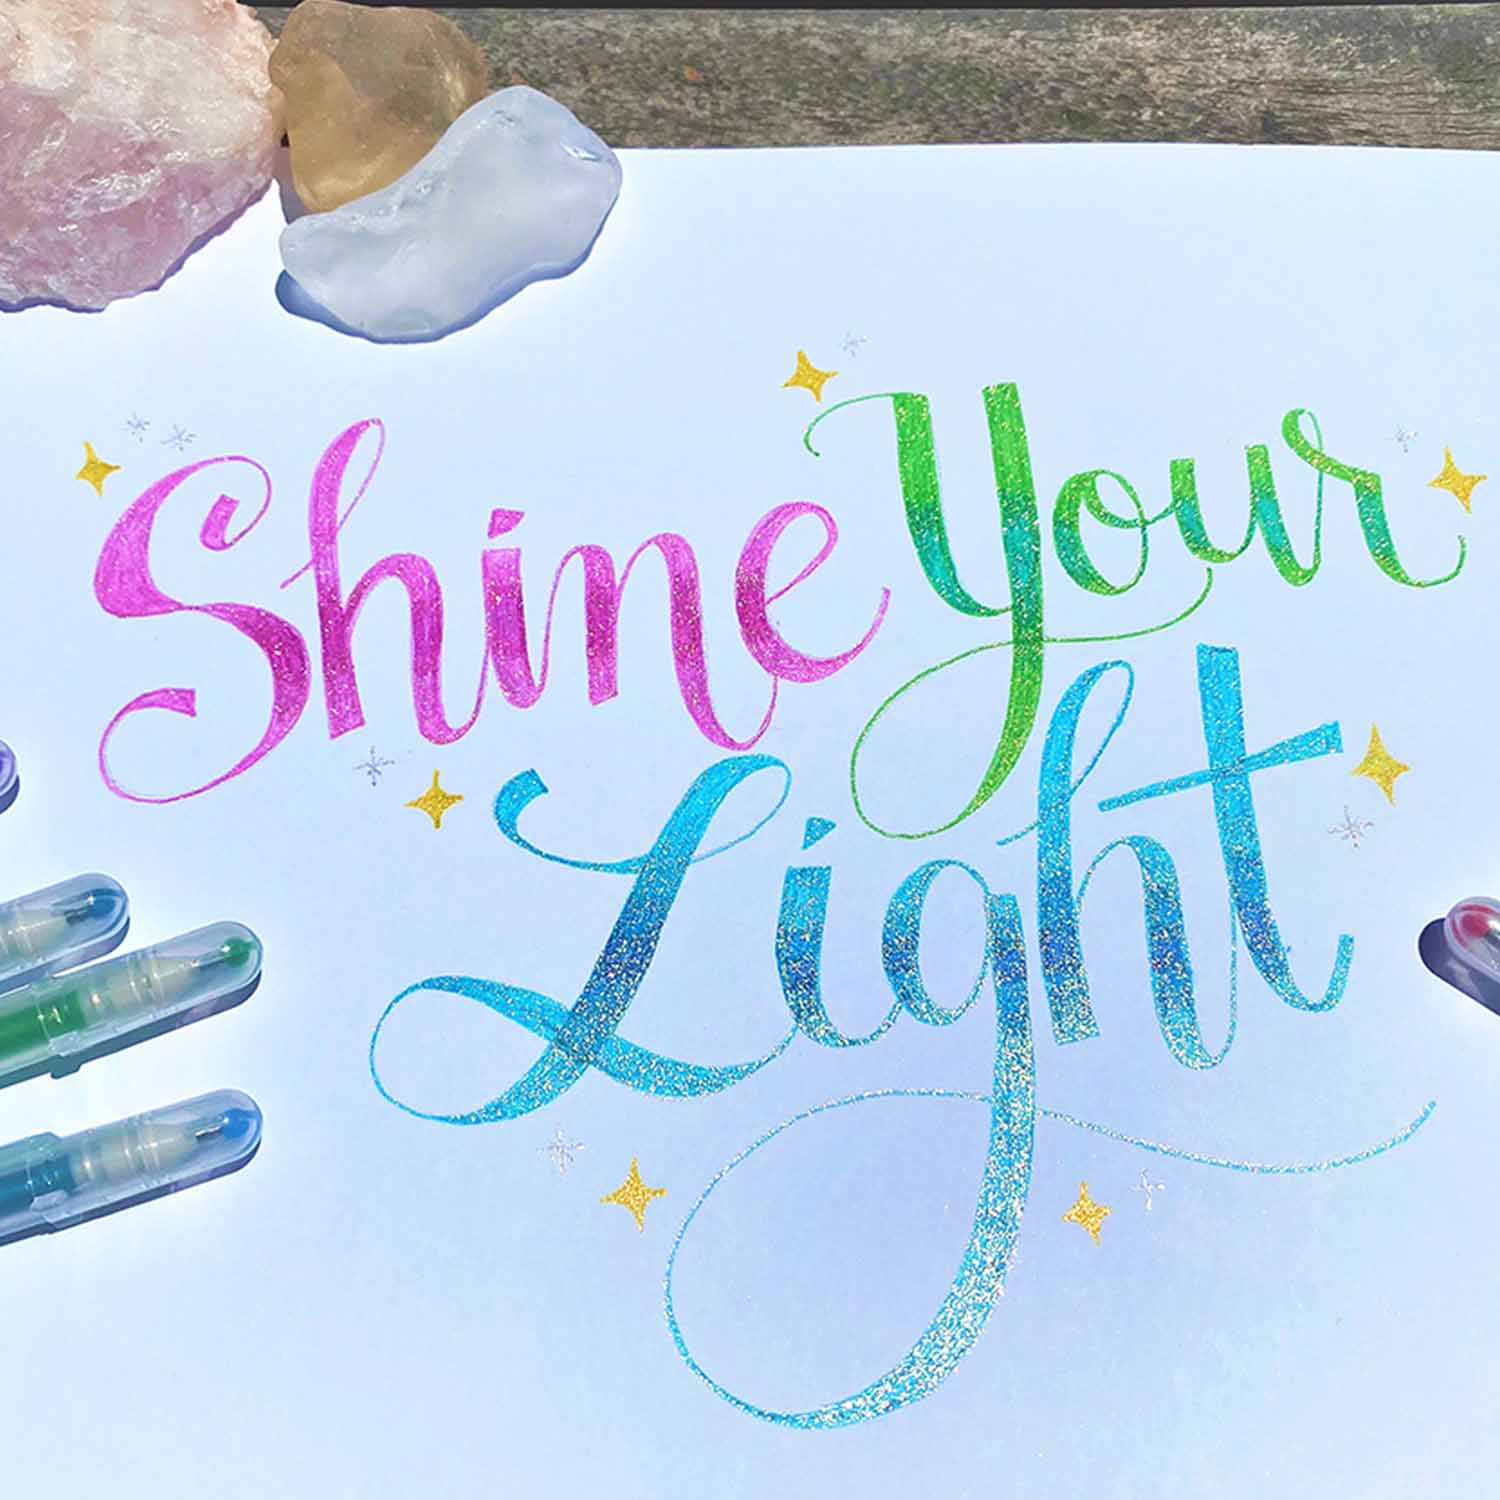 Shine Your
Light